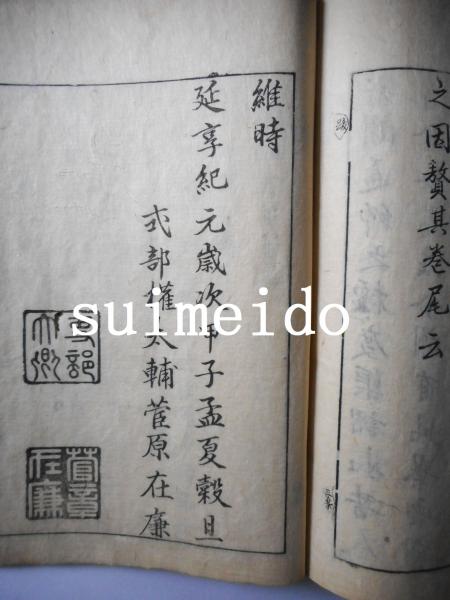 之因贅其卷尾云
維時
延享紀元歲次甲子孟夏穀旦
式部權大輔菅原在廉
suimeido